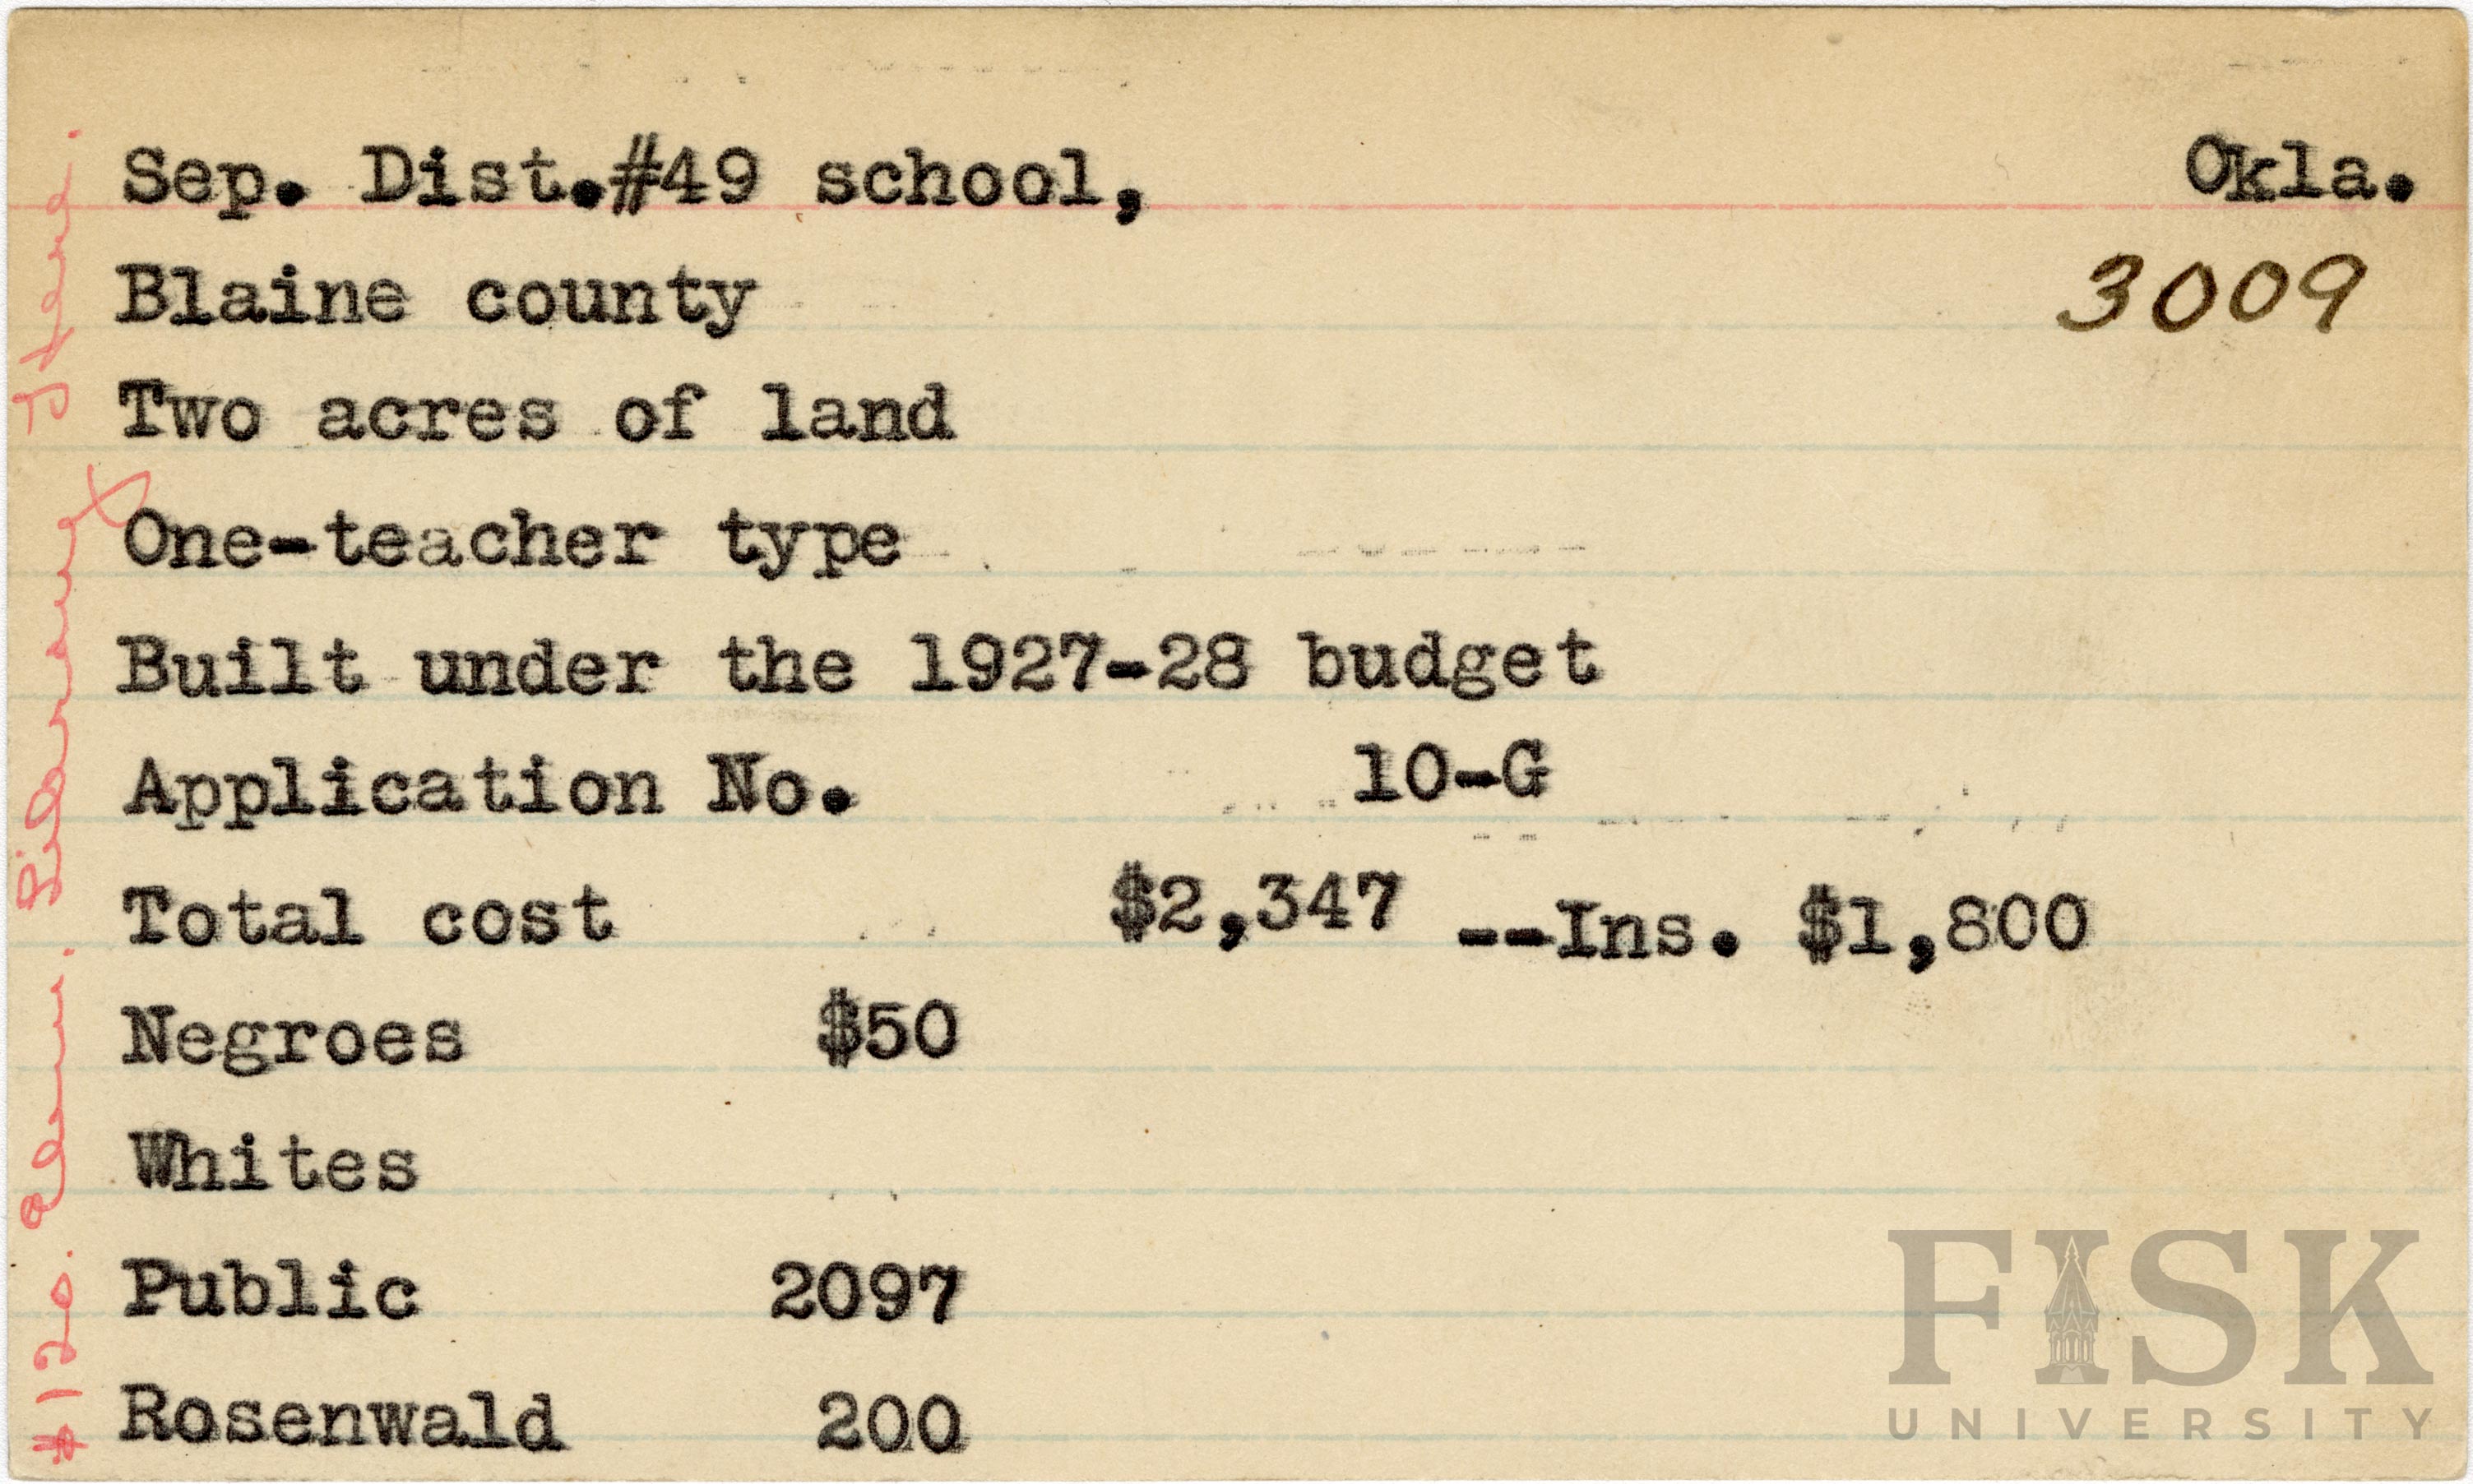 Sep. Dist.#49 school, Okla.
Blaine county 3009
Two acres of land
One-teacher type
Built under the 1927-28 budget
Application No. 10-G
Total cost $2,347 --Ins. $1,800
Negroes $50
Whites
Public 2097
Rosenwald 200
$120. Elem. Library
FISK
UNIVERSITY